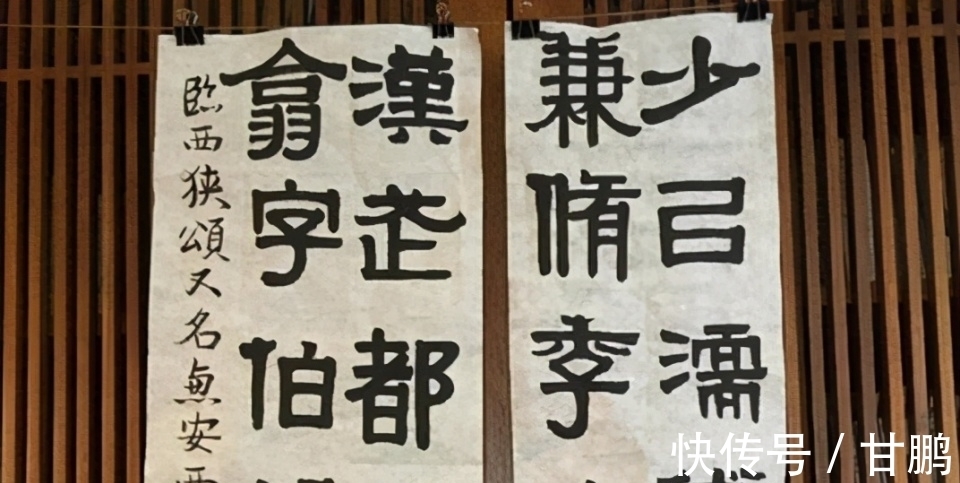 少㠯濡
兼脩季
漢武都
翕字伯
臨西狹頌又名惠安西
快传号 / 甘鹏